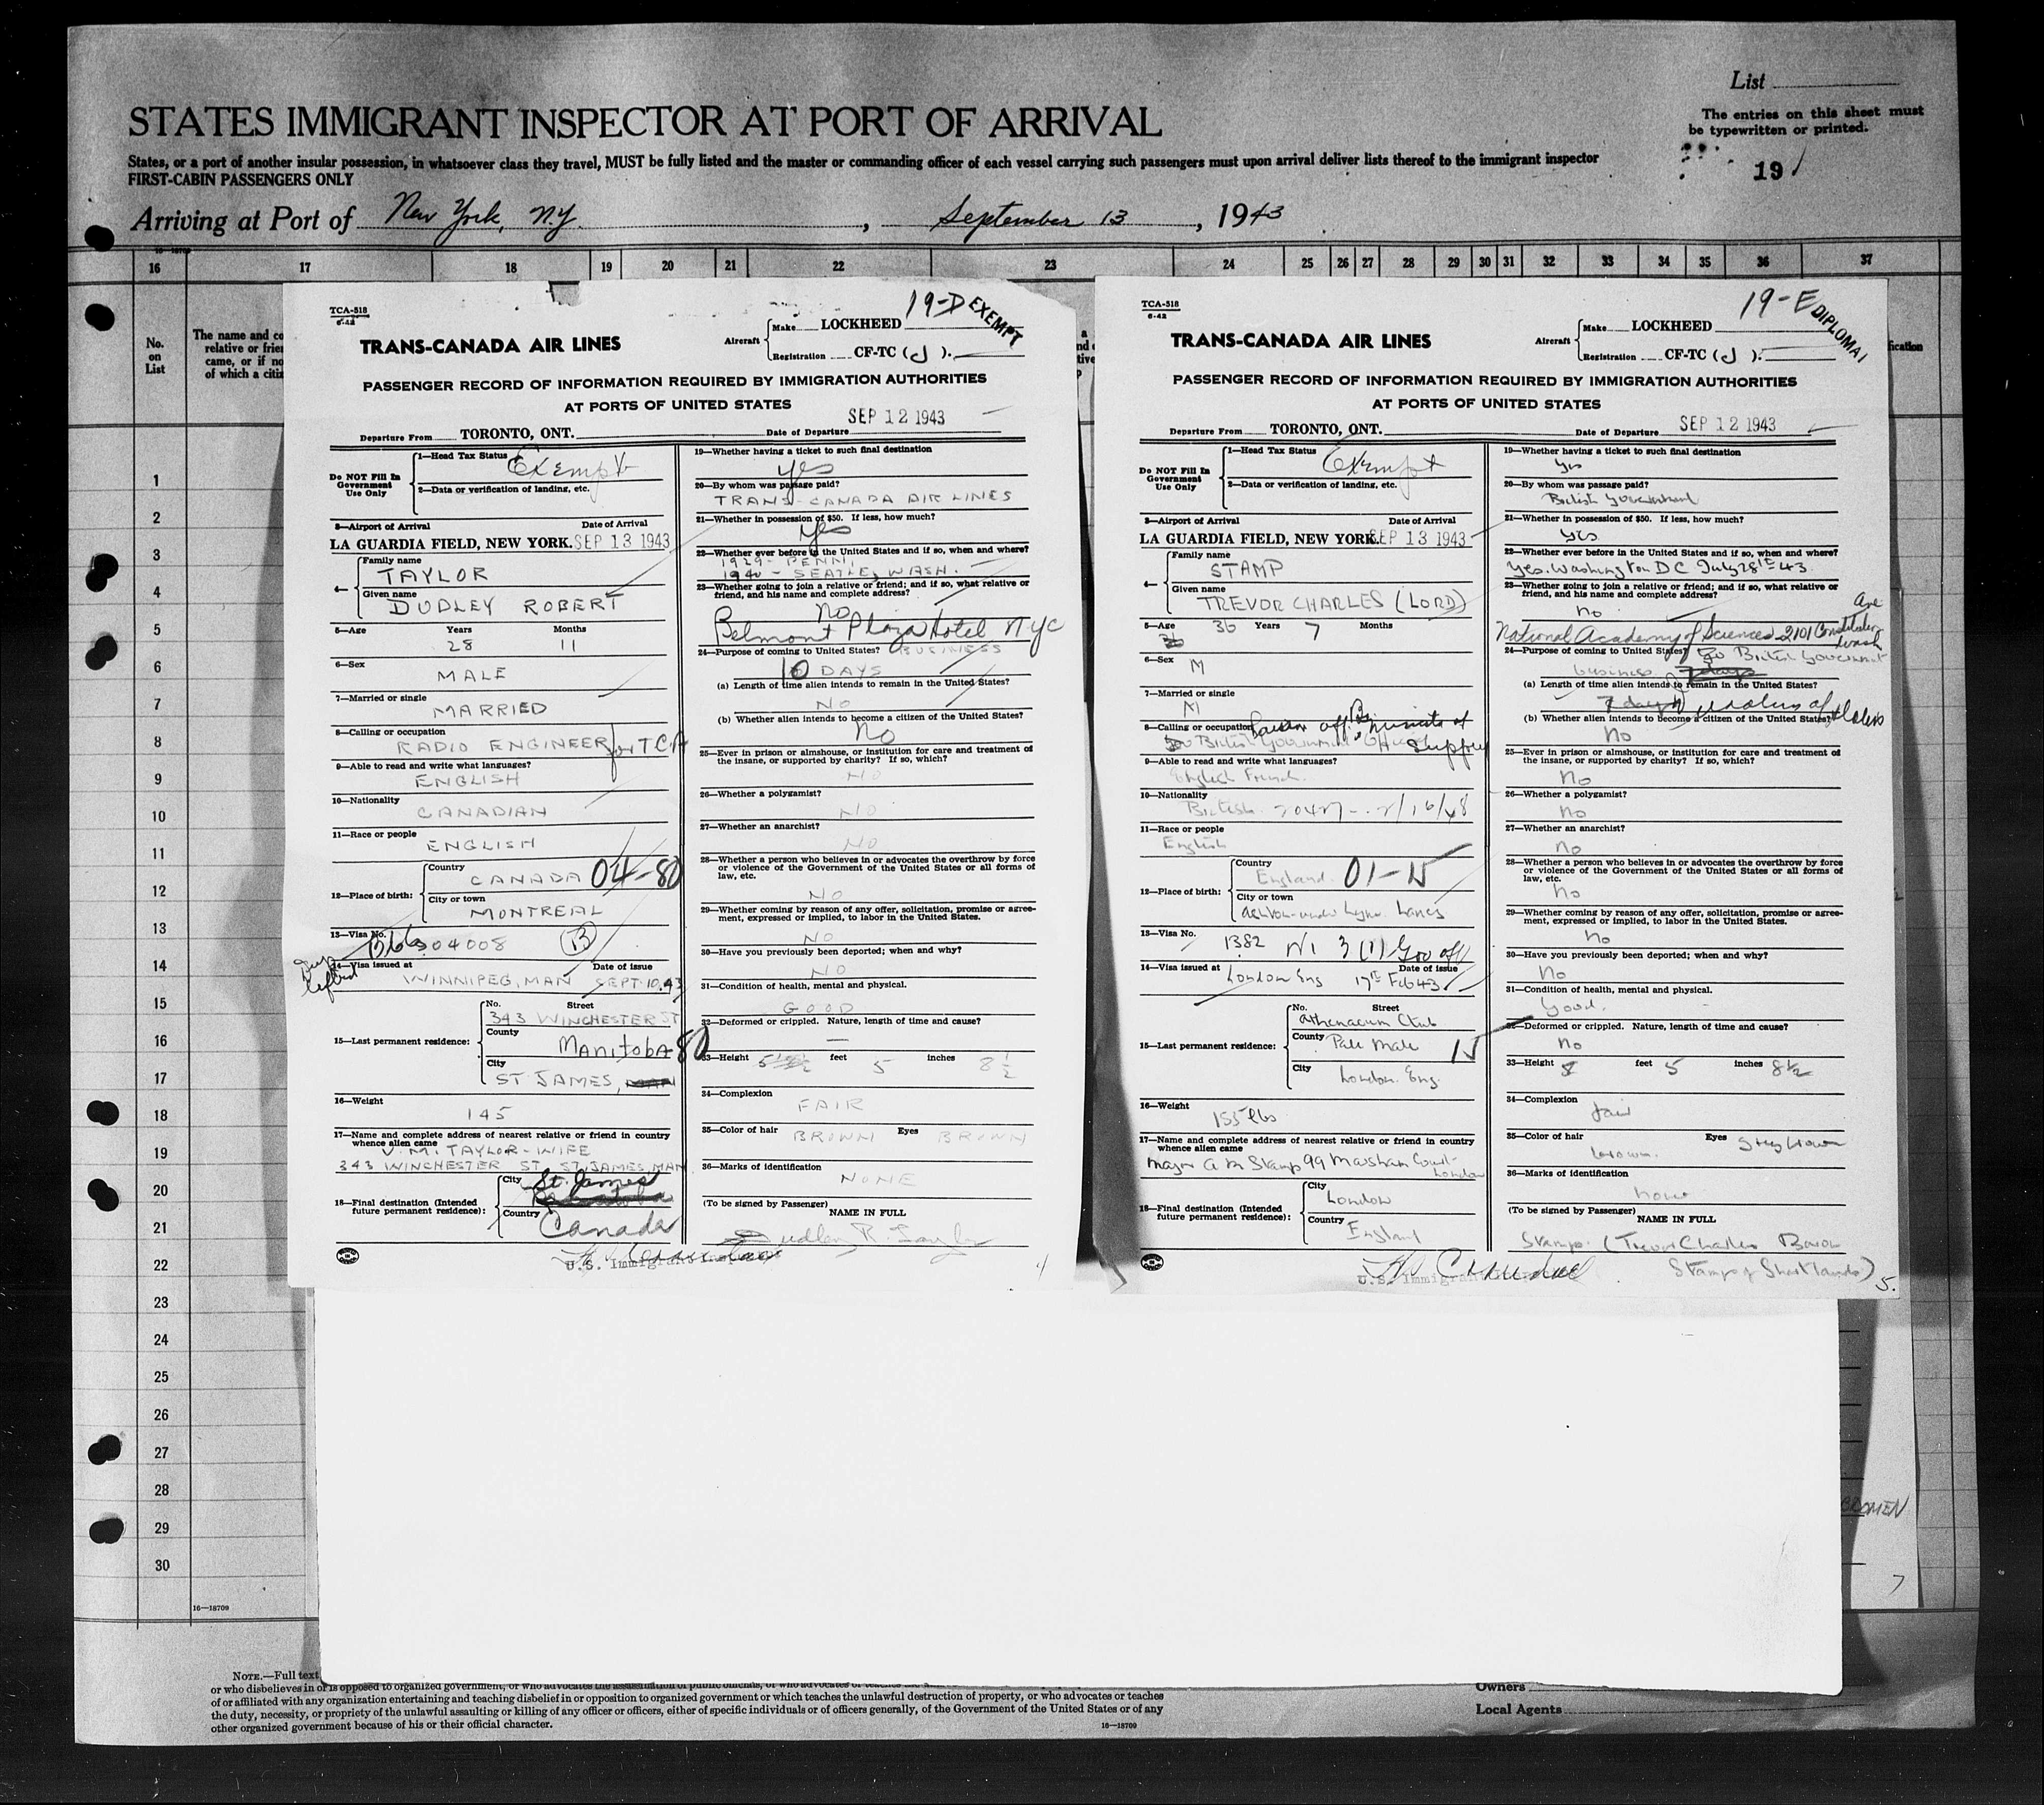 List
STATES IMMIGRANT INSPECTOR AT PORT OF ARRIVAL
The entries on this sheet must
be typewritten or printed.
States, or a port of another insular possession, in whatsoever class they travel, MUST be fully listed and the master or commanding officer of each vessel carrying such passengers must upon arrival deliver lists thereof to the immigrant inspector
FIRST-CABIN PASSENGERS ONLY
191
Arriving at Port of New York, N.Y. , September 13 , 1943
16 17 18 19 20 21 22 23 24 25 26 27 28 29 30 31 32 33 34 35 36 37
No.
on
List
The name and co
relative or frie
came, or if no
of which a citiz
1
2
3
4
5
6
7
8
9
10
11
12
13
14
15
16
17
18
19
20
21
22
23
24
25
26
27
28
29
30
16—18709
TCA-518
6-42
19-D EXEMPT
TRANS-CANADA AIR LINES
Aircraft
Make LOCKHEED
Registration CF-TC (J).
PASSENGER RECORD OF INFORMATION REQUIRED BY IMMIGRATION AUTHORITIES
AT PORTS OF UNITED STATES
SEP 12 1943
Departure From TORONTO, ONT. Date of Departure
Do NOT Fill In
Government
Use Only
1—Head Tax Status Exempt
2—Data or verification of landing, etc.
3—Airport of Arrival Date of Arrival
LA GUARDIA FIELD, NEW YORK. SEP 13 1943
4— Family name
TAYLOR
Given name
DUDLEY ROBERT
5—Age Years Months
28 11
6—Sex
MALE
7—Married or single
MARRIED
8—Calling or occupation
RADIO ENGINEER for TCA
9—Able to read and write what languages?
ENGLISH
10—Nationality
CANADIAN
11—Race or people
ENGLISH
12—Place of birth:
Country
CANADA 04-80
City or town
MONTREAL
13—Visa No.
04008 (B)
14—Visa issued at Date of issue
WINNIPEG, MAN SEPT 10.43
15—Last permanent residence:
No. Street
343 WINCHESTER ST
County
Manitoba 80
City
ST. JAMES, MAN
16—Weight
145
17—Name and complete address of nearest relative or friend in country
whence alien came
V. M. TAYLOR - WIFE
343 WINCHESTER ST. ST. JAMES, MAN
18—Final destination (Intended
future permanent residence):
City St. James
Country Canada
U.S. Immigrant
19—Whether having a ticket to such final destination
yes
20—By whom was passage paid?
TRANS-CANADA AIR LINES
21—Whether in possession of $50. If less, how much?
yes
22—Whether ever before in the United States and if so, when and where?
1929 - PENN.
1940 - SEATLE, WASH.
23—Whether going to join a relative or friend; and if so, what relative or
friend, and his name and complete address?
No
Belmont Plaza Hotel NYC
24—Purpose of coming to United States? BUSINESS
10 DAYS
(a) Length of time alien intends to remain in the United States?
NO
(b) Whether alien intends to become a citizen of the United States?
No
25—Ever in prison or almshouse, or institution for care and treatment of
the insane, or supported by charity? If so, which?
NO
26—Whether a polygamist?
NO
27—Whether an anarchist?
NO
28—Whether a person who believes in or advocates the overthrow by force
or violence of the Government of the United States or all forms of
law, etc.
NO
29—Whether coming by reason of any offer, solicitation, promise or agree-
ment, expressed or implied, to labor in the United States.
NO
30—Have you previously been deported; when and why?
NO
31—Condition of health, mental and physical.
GOOD
32—Deformed or crippled. Nature, length of time and cause?
—
33—Height feet 5 inches 8½
34—Complexion
FAIR
35—Color of hair BROWN Eyes BROWN
36—Marks of identification
NONE
(To be signed by Passenger)
NAME IN FULL
Dudley R. Taylor
TCA-518
6-42
19-E DIPLOMAT
TRANS-CANADA AIR LINES
Aircraft
Make LOCKHEED
Registration CF-TC (J).
PASSENGER RECORD OF INFORMATION REQUIRED BY IMMIGRATION AUTHORITIES
AT PORTS OF UNITED STATES
SEP 12 1943
Departure From TORONTO, ONT. Date of Departure
Do NOT Fill In
Government
Use Only
1—Head Tax Status Exempt
2—Data or verification of landing, etc.
3—Airport of Arrival Date of Arrival
LA GUARDIA FIELD, NEW YORK. SEP 13 1943
4— Family name
STAMP
Given name
TREVOR CHARLES (LORD)
5—Age 36 Years 7 Months
6—Sex
M
7—Married or single
M
8—Calling or occupation
British Government Supply
9—Able to read and write what languages?
English French.
10—Nationality
British
11—Race or people
English
12—Place of birth:
Country
England. 01-15
City or town
Ashton-under-Lyne. Lancs
13—Visa No.
1382 3(1) Gov off
14—Visa issued at Date of issue
London Eng 17th Feb 43
15—Last permanent residence:
No. Street
Athenaeum Club
County
Pall Mall 15
City
London. Eng.
16—Weight
155 lbs
17—Name and complete address of nearest relative or friend in country
whence alien came
Major A M Stamp 99 Marsham Court London
18—Final destination (Intended
future permanent residence):
City
London
Country
England
U.S. Immigrant
19—Whether having a ticket to such final destination
yes
20—By whom was passage paid?
British Government
21—Whether in possession of $50. If less, how much?
yes
22—Whether ever before in the United States and if so, when and where?
Yes. Washington DC July 28th 43
23—Whether going to join a relative or friend; and if so, what relative or
friend, and his name and complete address?
no
National Academy of Sciences 2101 Constitution Ave Wash
24—Purpose of coming to United States? British Government
business 7 days
(a) Length of time alien intends to remain in the United States?
7 days
(b) Whether alien intends to become a citizen of the United States?
no
25—Ever in prison or almshouse, or institution for care and treatment of
the insane, or supported by charity? If so, which?
no
26—Whether a polygamist?
no
27—Whether an anarchist?
no
28—Whether a person who believes in or advocates the overthrow by force
or violence of the Government of the United States or all forms of
law, etc.
no
29—Whether coming by reason of any offer, solicitation, promise or agree-
ment, expressed or implied, to labor in the United States.
no
30—Have you previously been deported; when and why?
no
31—Condition of health, mental and physical.
good.
32—Deformed or crippled. Nature, length of time and cause?
no
33—Height feet 5 inches 8½
34—Complexion
fair
35—Color of hair brown. Eyes grey brown
36—Marks of identification
none
(To be signed by Passenger)
NAME IN FULL
Stamp. (Trevor Charles Baron
Stamp of Shortlands)
5.
NOTE.—Full text
or who disbelieves in or is opposed to organized government, or who advocates the assassination of public officials, or who advocates or teaches
of or affiliated with any organization entertaining and teaching disbelief in or opposition to organized government or which teaches the unlawful destruction of property, or who advocates or teaches
the duty, necessity, or propriety of the unlawful assaulting or killing of any officer or officers, either of specific individuals or of officers generally, of the Government of the United States or of any
other organized government because of his or their official character.
16—18709
Owners
Local Agents